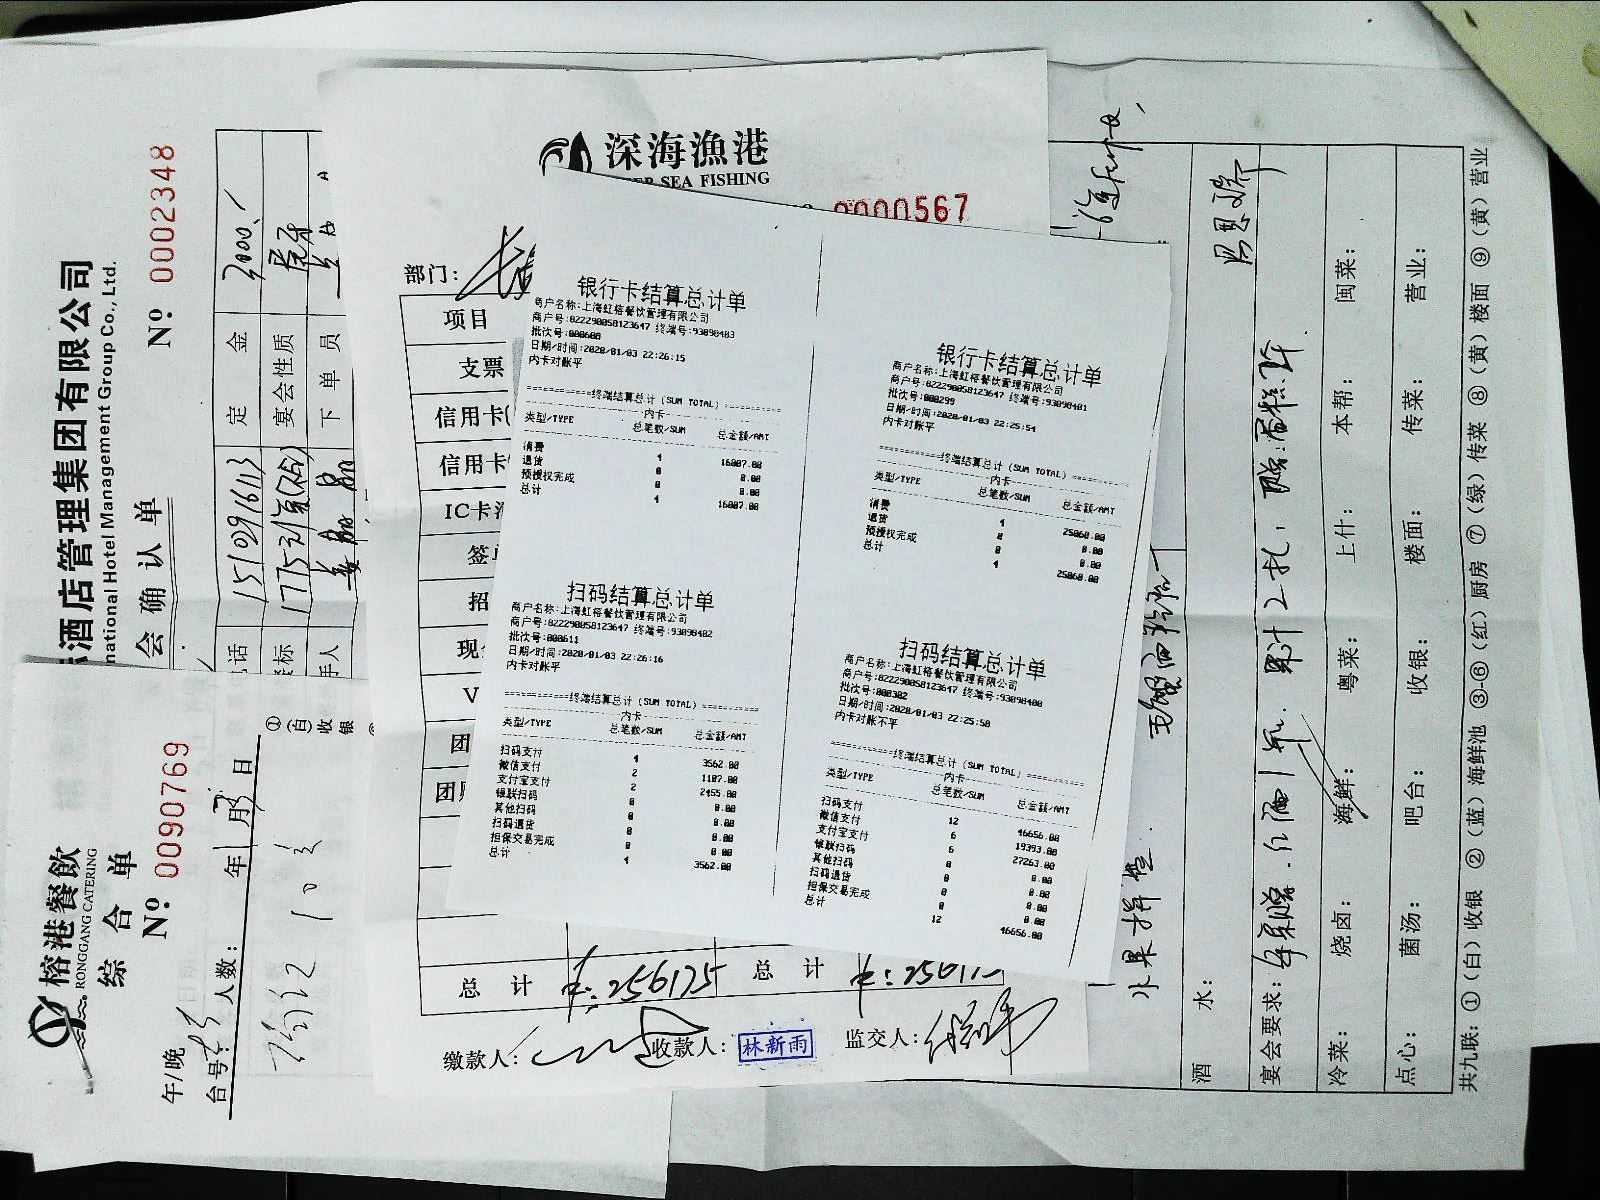 深海漁港
DEEP SEA FISHING
0000567
部门：
项目
支票
信用卡
信用卡
IC卡
签
招
现
V
团
团
总 计
¥：256175
总 计
缴款人：
收款人：
林新雨
监交人：
银行卡结算总计单
商户名称:上海虹榕餐饮管理有限公司
商户号:822290058123647 终端号:93090403
批次号:000600
日期/时间:2020/01/03 22:26:15
内卡对账平
终端结算总计 (SUM TOTAL)
内卡
类型/TYPE 总笔数/SUM 总金额/AMT
消费 4 16007.00
退货 0 0.00
预授权完成 0 0.00
总计 4 16007.00
扫码结算总计单
商户名称:上海虹榕餐饮管理有限公司
商户号:822290058123647 终端号:93090402
批次号:000611
日期/时间:2020/01/03 22:26:16
内卡对账平
终端结算总计 (SUM TOTAL)
内卡
类型/TYPE 总笔数/SUM 总金额/AMT
扫码支付 4 3562.00
微信支付 2 1107.00
支付宝支付 2 2455.00
银联扫码 0 0.00
其他扫码 0 0.00
扫码退货 0 0.00
担保交易完成 0 0.00
总计 4 3562.00
银行卡结算总计单
商户名称:上海虹榕餐饮管理有限公司
商户号:822290058123647 终端号:93090401
批次号:000299
日期/时间:2020/01/03 22:25:54
内卡对账平
终端结算总计 (SUM TOTAL)
内卡
类型/TYPE 总笔数/SUM 总金额/AMT
消费 4 25060.00
退货 0 0.00
预授权完成 0 0.00
总计 4 25060.00
扫码结算总计单
商户名称:上海虹榕餐饮管理有限公司
商户号:822290058123647 终端号:93090400
批次号:000302
日期/时间:2020/01/03 22:25:50
内卡对账不平
终端结算总计 (SUM TOTAL)
内卡
类型/TYPE 总笔数/SUM 总金额/AMT
扫码支付 12 46656.00
微信支付 6 19393.00
支付宝支付 6 27263.00
银联扫码 0 0.00
其他扫码 0 0.00
扫码退货 0 0.00
担保交易完成 0 0.00
总计 12 46656.00
酒店管理集团有限公司
national Hotel Management Group Co., Ltd.
会 确 认 单
Nº 0002348
话 15102916113 定 金 3000.
餐标 宴会性质
手人 下 单 员
①(白)收银
榕港餐飲
RONGGANG CATERING
综 合 单
Nº 0090769
午/晚
台号： 人数： 年 1 月 3 日
水果拼盘
酒 水：
宴会要求：
冷菜： 烧卤： 海鲜： 粤菜： 上什： 本帮： 闽菜：
点心： 菌汤： 吧台： 收银： 楼面： 传菜： 营业：
共九联：①(白)收银 ②(蓝)海鲜池 ③-⑥(红)厨房 ⑦(绿)传菜 ⑧(黄)楼面 ⑨(黄)营业